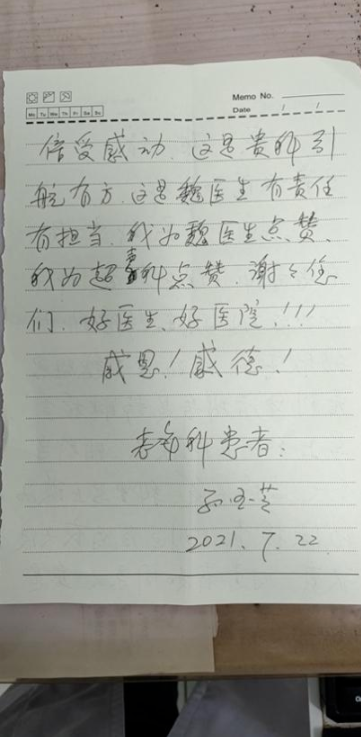 Memo No.
Mo Tu We Th Fr Sa Su
Date / /
倍受感动.这是贵科引
航有方.这是魏医生有责任
有担当.我为魏医生点赞.
我为超声科点赞.谢谢您
们.好医生.好医院!!!
感恩!感德!
老年科患者:
2021.7.22